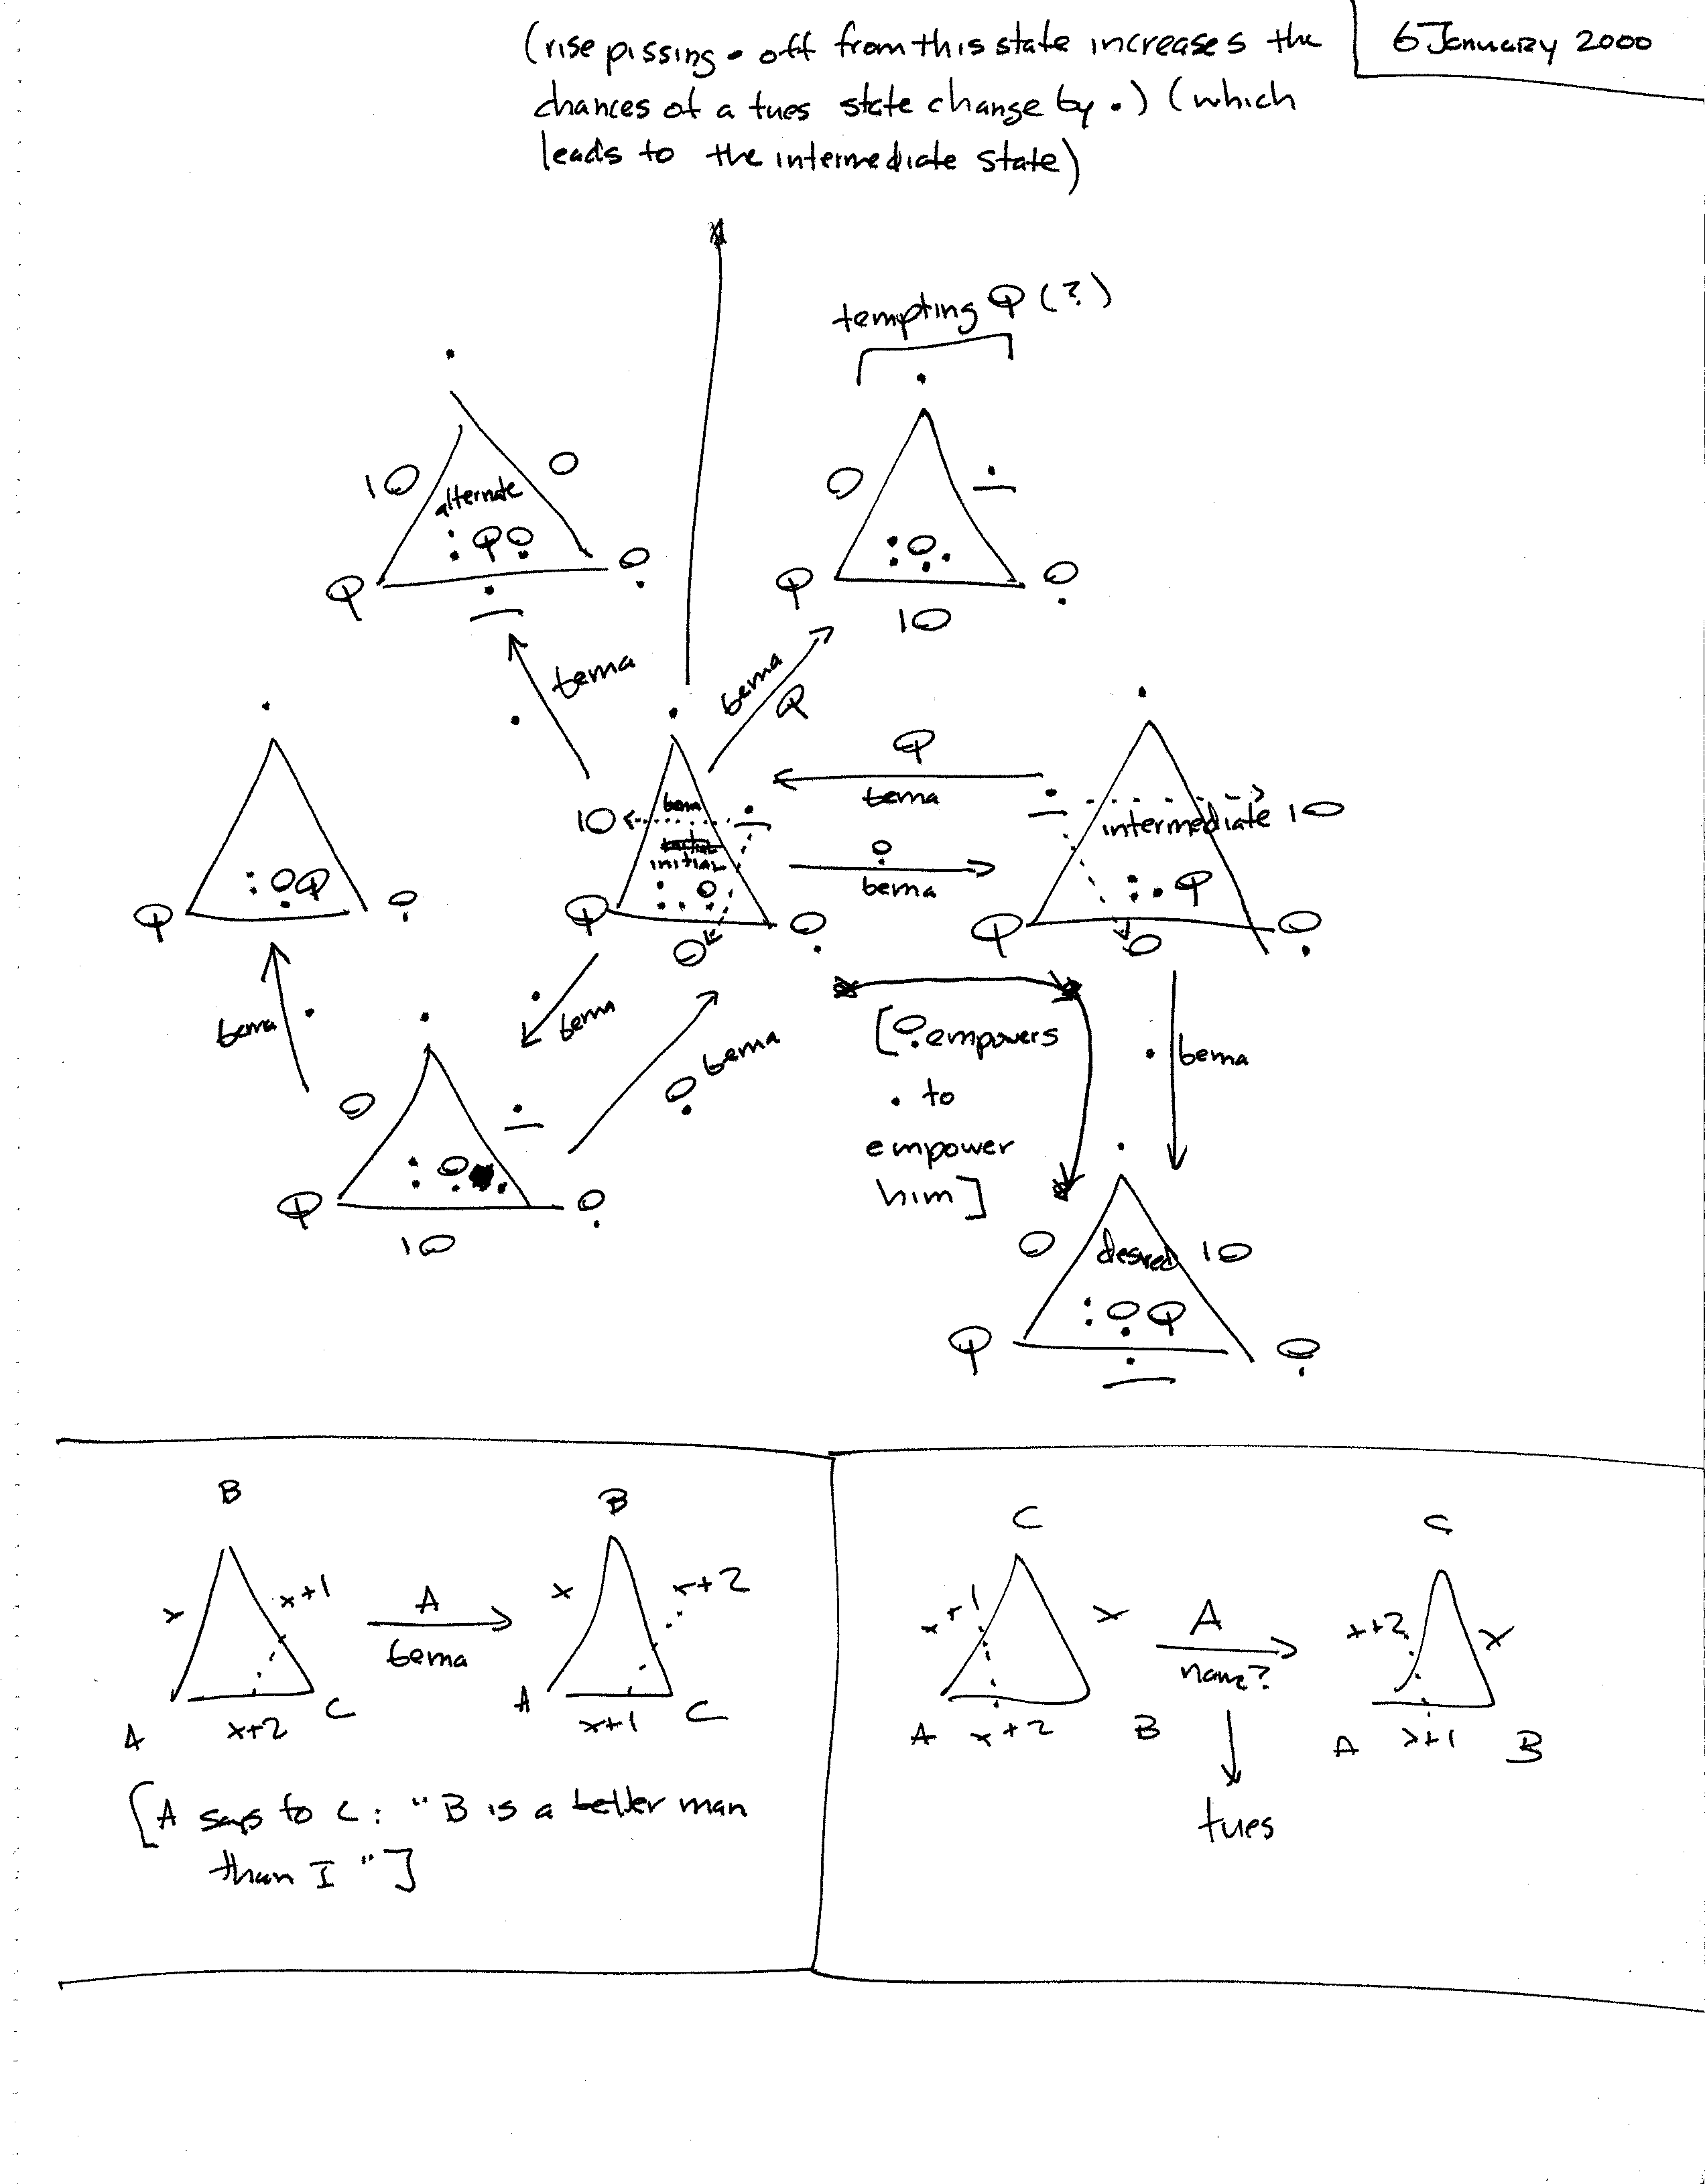 6 January 2000
(rise pissing • off from this state increases the
chances of a tues state change by •) (which
leads to the intermediate state)
tempting Q (?)
10
alternate
10
bema
bema
Q
Q
bema
10
initial
bema
intermediate 10
bema
bema
bema
bema
[ empowers
• to
empower
him]
• bema
10
desired 10
B
x
x+1
A
x+2
C
A
bema
B
x
x+2
A
x+1
C
[A says to C: "B is a better man
than I"]
C
x+1
x
A
x+2
B
A
name?
tues
C
x+2
x
A
x+1
B